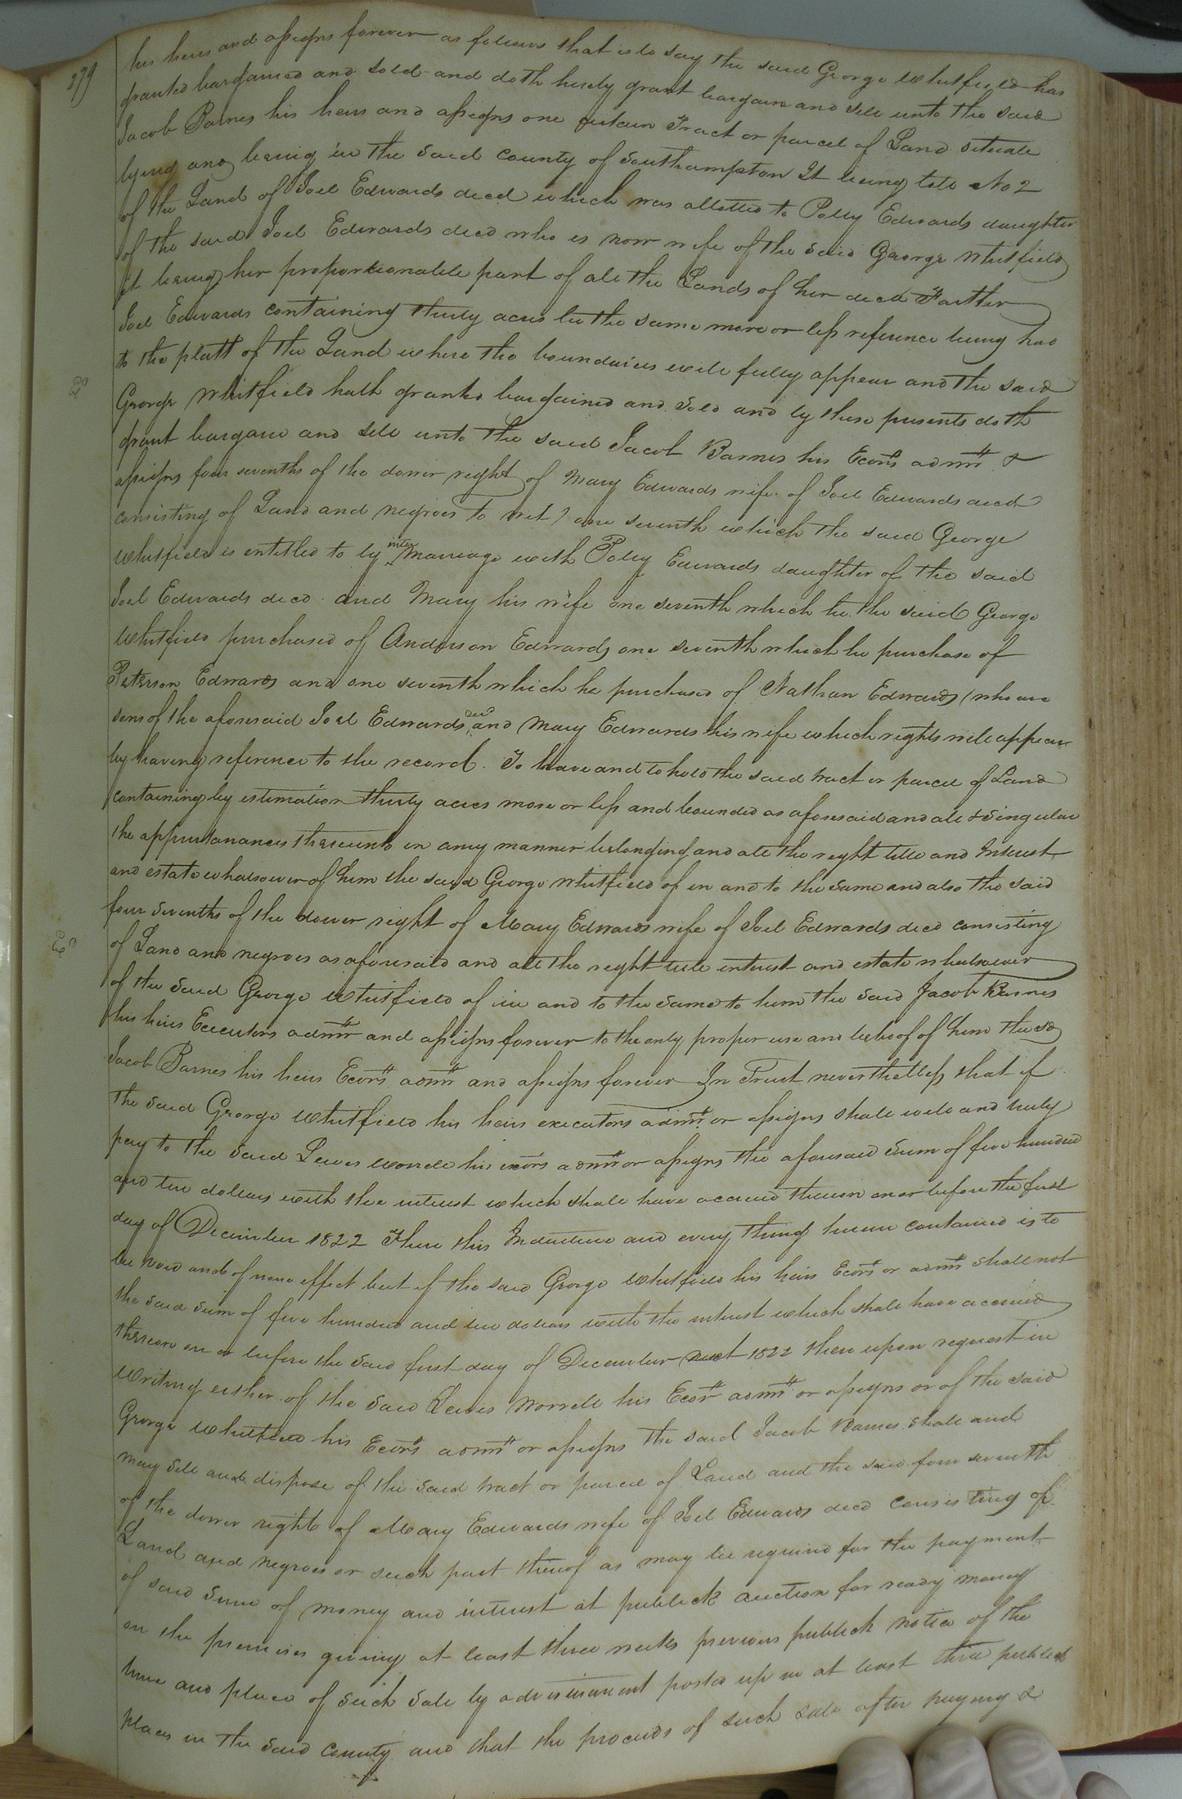 279
his heirs and assigns forever as follows that is to say the said George Whitfield has
granted bargained and sold and doth hereby grant bargain and sell unto the said
Jacob Barnes his heirs and assigns one certain Tract or parcel of Land situate
lying and being in the said county of Southampton It being lott No 2
of the Land of Joel Edwards decd which was allotted to Polly Edwards daughter
of the said Joel Edwards decd who is now wife of the said George Whitfield
it being her proportionable part of all the Lands of her decd Farther
Joel Edwards containing thirty acres be the same more or less reference being had
to the platt of the Land where the boundaries will fully appear and the said
George Whitfield hath granted bargained and sold and by these presents doth
grant bargain and sell unto the said Jacob Barnes his Ecors admrs &
assigns four sevenths of the dower right of Mary Edwards wife of Joel Edwards decd
consisting of Land and negroes to wit) one seventh which the said George
Whitfield is entitled to by inter marriage with Polly Edwards daughter of the said
Joel Edwards decd and Mary his wife one seventh which he the said George
Whitfield purchased of Anderson Edwards one seventh which he purchase of
Peterson Edwards and one seventh which he purchased of Nathan Edwards (who are
sons of the aforesaid Joel Edwards decd and Mary Edwards his wife which rights will appear
by having reference to the record. To have and to hold the said tract or parcel of Land
containing by estimation thirty acres more or less and bounded as aforesaid and all & singular
the appurtanances thereunto in any manner belonging and all the right title and Interest
and estate whatsoever of him the said George Whitfield of in and to the same and also the said
four sevenths of the dower right of Mary Edwards wife of Joel Edwards decd consisting
of Land and negroes as aforesaid and all the right title interest and estate whatsoever
of the said George Whitfield of in and to the same to him the said Jacob Barnes
his heirs Executors admrs and assigns forever to the only proper use and behoof of him the sd
Jacob Barnes his heirs Ecors admrs and assigns forever In Trust nevertheless that if
the said George Whitfield his heirs executors admrs or assigns shall well and truly
pay to the said Lewis Worrell his exors admrs or assigns the aforesaid sum of five hundred
and ten dollars with the interest which shall have accrued thereon on or before the first
day of December 1822 Then this Indenture and every thing herein contained is to
be void and of none effect but if the said George Whitfield his heirs Ecors or admrs shall not
the said sum of five hundred and ten dollars with the interest which shall have accrued
thereon on or before the said first day of December next 1822 then upon request in
writing either of the said Lewis Worrell his Ecors admrs or assigns or of the said
George Whitfield his Ecors admrs or assigns the said Jacob Barnes shall and
may sell and dispose of the said tract or parcel of Land and the said four seventh
of the dower right of Mary Edwards wife of Joel Edwards decd consisting of
Land and negroes or such part thereof as may be required for the payment
of said sum of money and interest at publick auction for ready money
on the premises giving at least three weeks previous publick notice of the
time and place of such sale by advertisement posted up in at least three publick
places in the said county and that the proceeds of such sale after paying &